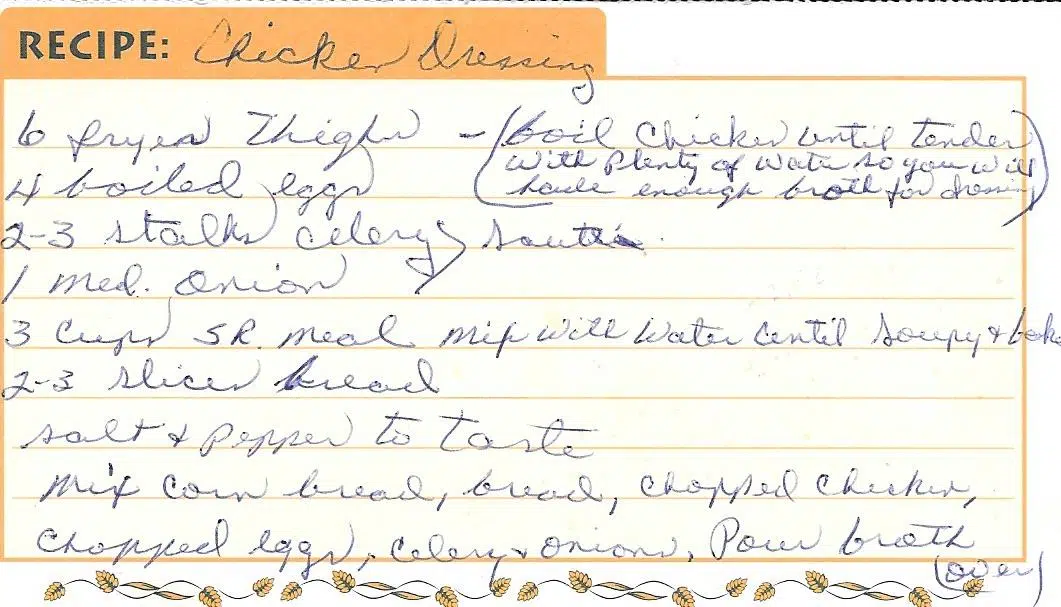 RECIPE: Chicken Dressing
6 fryer Thighs - (boil Chicken until tender
with Plenty of Water so you will
have enough broth for dressing)
4 boiled eggs
2-3 stalks celery } saute
1 med. onion
3 Cups S R. meal mix with Water until Soupy & bake
2-3 slices bread
salt & pepper to taste
mix corn bread, bread, chopped chicken,
chopped eggs, celery & onions, Pour broth
(over)